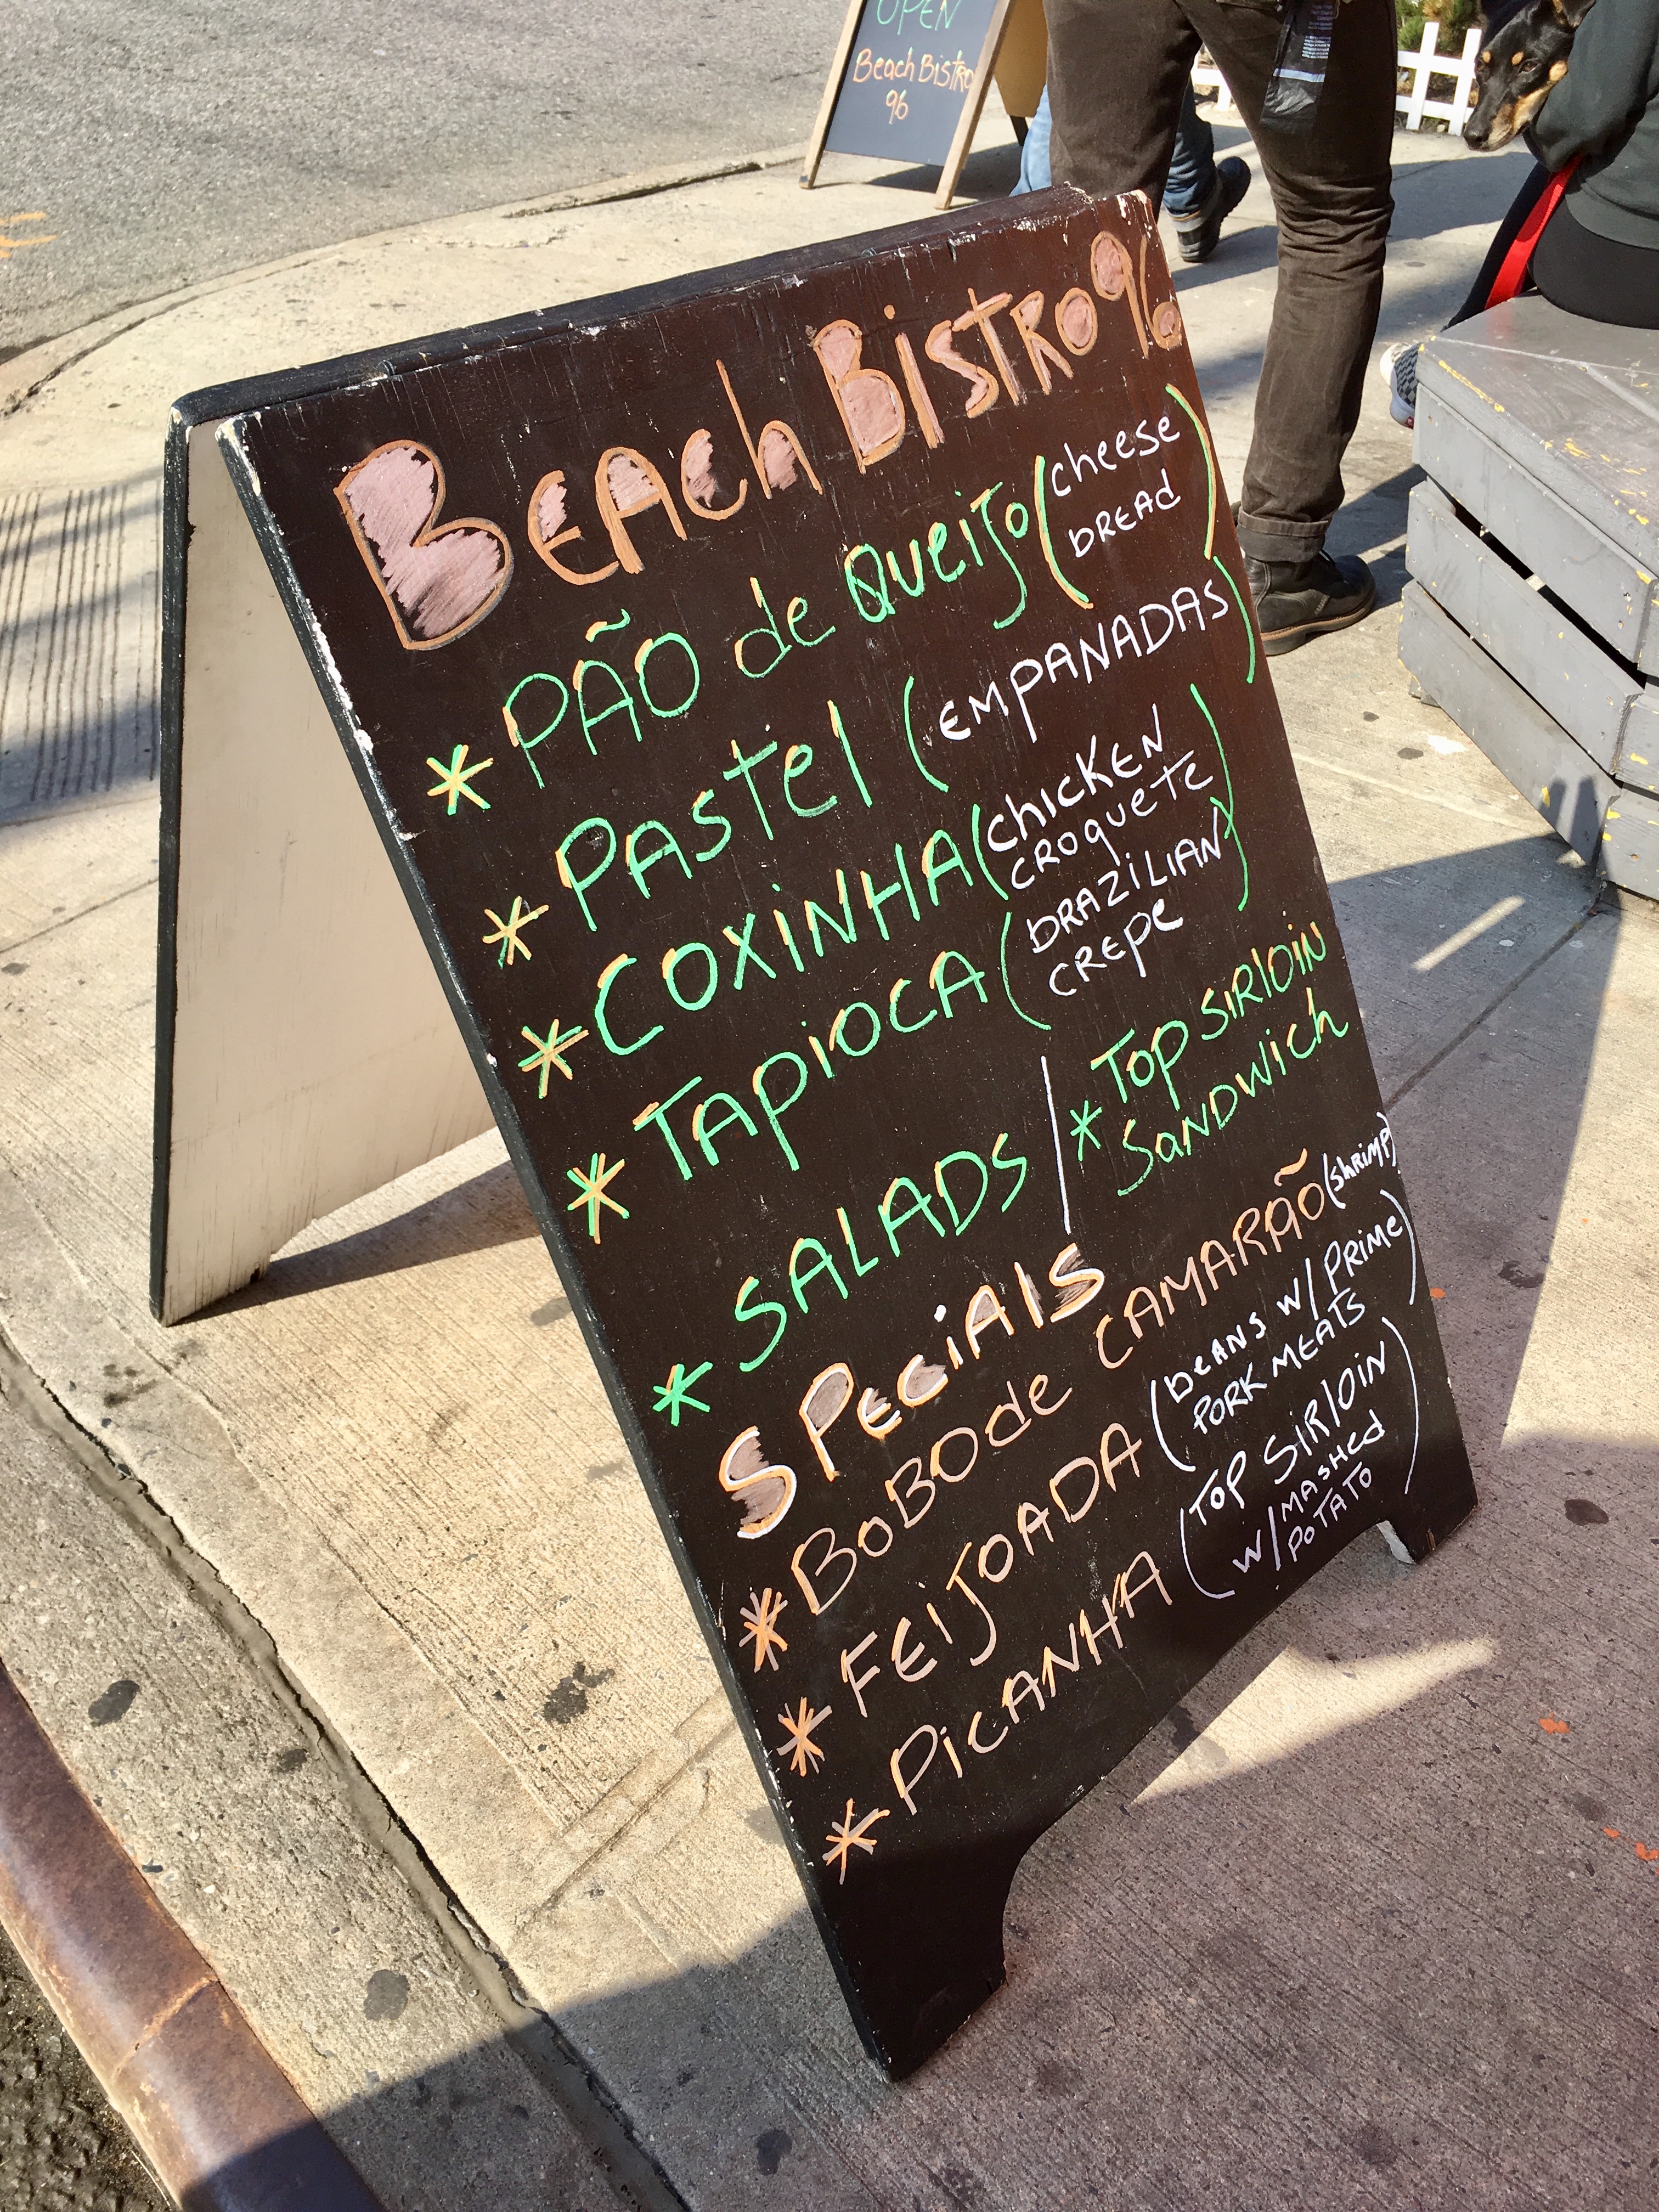 OPEN
Beach Bistro
96
BEAch BisTRO 96
* PÃO de QueiJo (cheese
bREAd)
* PAsTel (EMPANADAS)
* COXiNHA (chicKEN
CROqueTe)
* TAPiOCA (bRAZiLiAN
CREPe)
* SALADS / * Top SiRlOiN
SANDWich
SPeciAlS
* BOBO de CAMARÃO (ShRiMP)
* FEiJOADA (beANS w/ PRiMe
PORK MEATS)
* PicANHA (TOP SiRlOiN
w/ MAsHed
PoTATO)